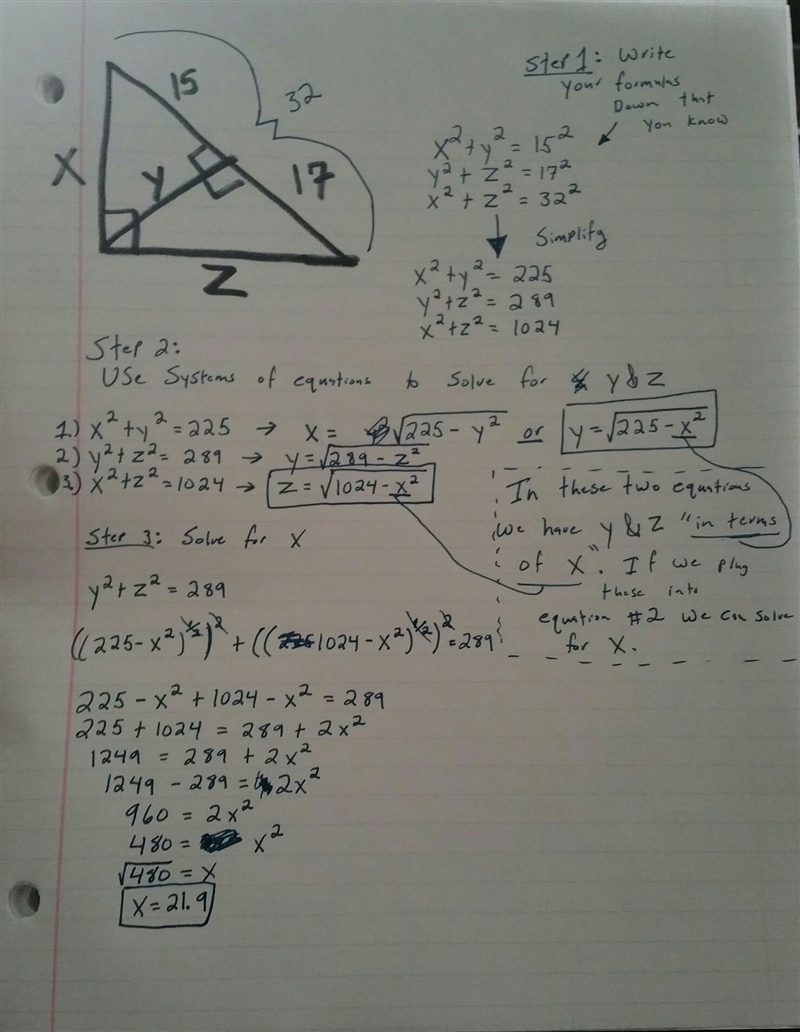 15
32
X
y
17
Z
Step 1: Write
your formulas
Down that
you know
x² + y² = 15²
y² + z² = 17²
x² + z² = 32²
Simplify
x² + y² = 225
y² + z² = 289
x² + z² = 1024
Step 2:
Use Systems of equations to Solve for y & z
1.) x² + y² = 225 → x = √225 - y² or y = √225 - x²
2.) y² + z² = 289 → y = √289 - z²
3.) x² + z² = 1024 → z = √1024 - x²
In these two equations
we have y & z "in terms
of x". If we plug
these into
equation #2 we can solve
for x.
Step 3: Solve for x
y² + z² = 289
((225 - x²)^1/2)² + ((1024 - x²)^1/2)² = 289
225 - x² + 1024 - x² = 289
225 + 1024 = 289 + 2x²
1249 = 289 + 2x²
1249 - 289 = 2x²
960 = 2x²
480 = x²
√480 = x
x = 21.9